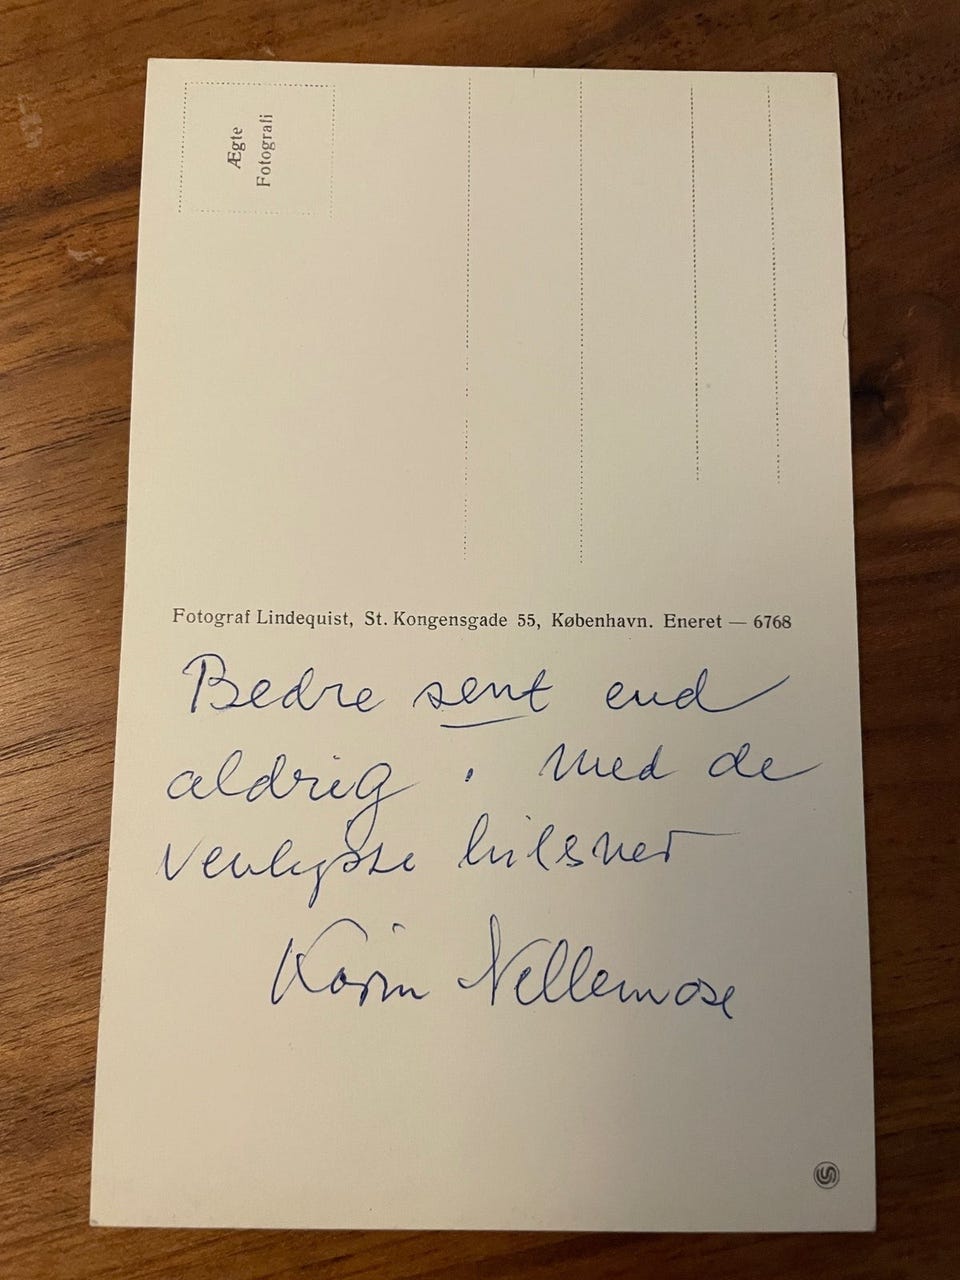 Ægte
Fotografi
Fotograf Lindequist, St. Kongensgade 55, København. Eneret — 6768
Bedre sent end
aldrig. Med de
venligste hilsner
Karin Nellemose